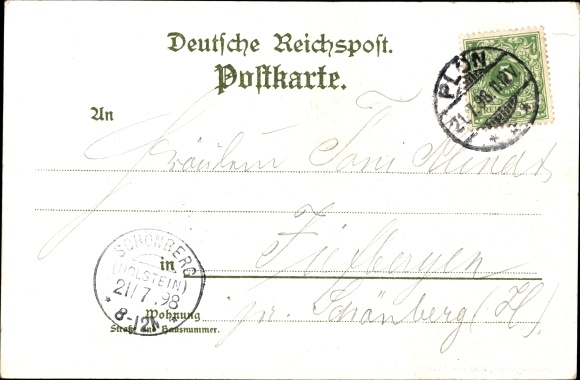 Deutsche Reichspost.
Postkarte.
PLÖN
21.7.98
An
Fräulein Toni
SCHÖNBERG
(HOLSTEIN)
21/7.98
8-12N
in
Wohnung
Straße und Hausnummer.
pr. Schönberg (H).